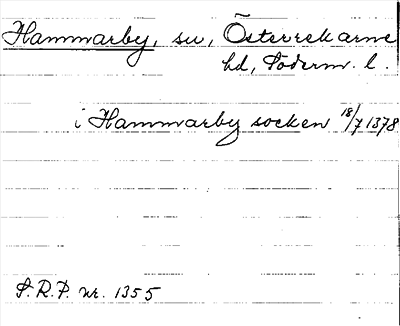 Hammarby, sn, Österrekarne
hd, Söderm. l.
i Hammarby socken 18/7 1378
S.R.P. nr. 1355